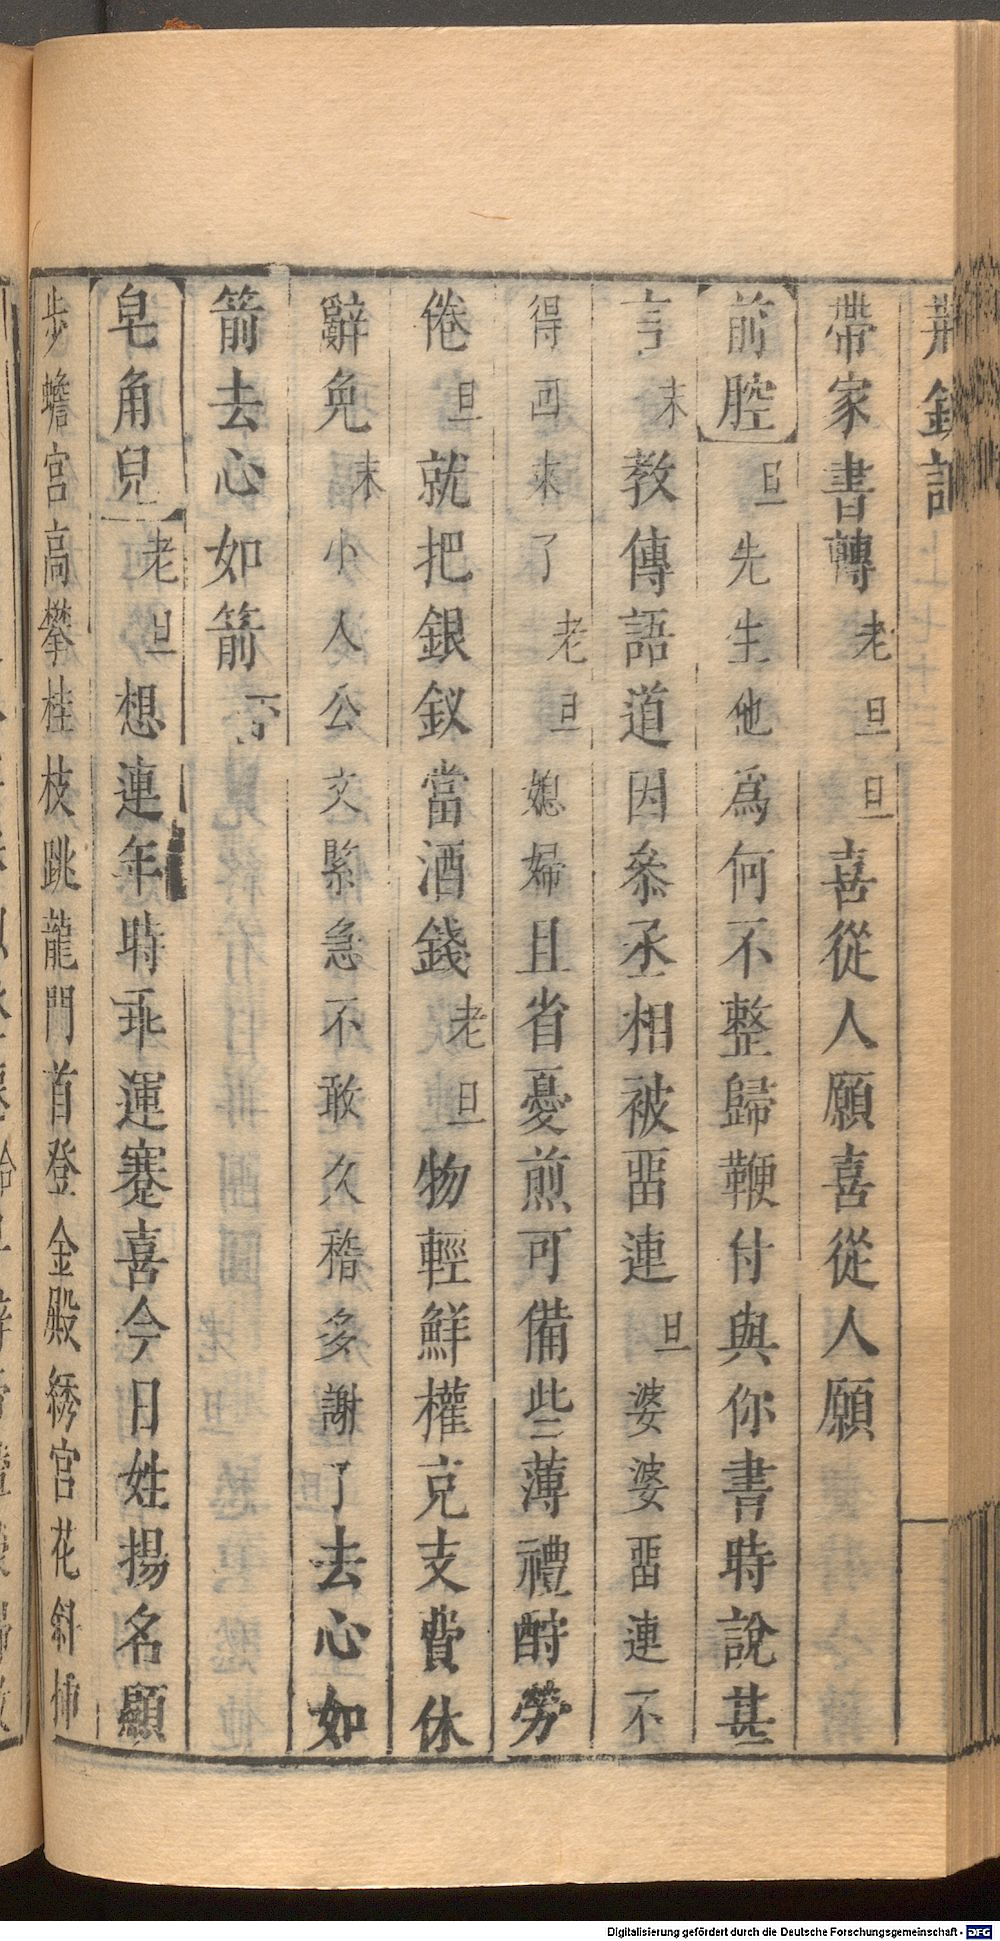 荆釵記
帶家書轉老旦旦喜從人願喜從人願
前腔旦先生他爲何不整歸鞭付與你書時說甚
言末教傳語道因叅丞相被畱連旦婆婆畱連不
得囬來了老旦媳婦且省憂煎可備些薄禮酧勞
倦旦就把銀釵當酒錢老旦物輕鮮權克支費休
辭免末小人公文緊急不敢久稽多謝了去心如
箭去心如箭下
皂角兒老旦想連年時乖運蹇喜今日姓揚名顯
步蟾宮高攀桂枝跳龍門首登金殿綉宮花斜揷
Digitalisierung gefördert durch die Deutsche Forschungsgemeinschaft - DFG